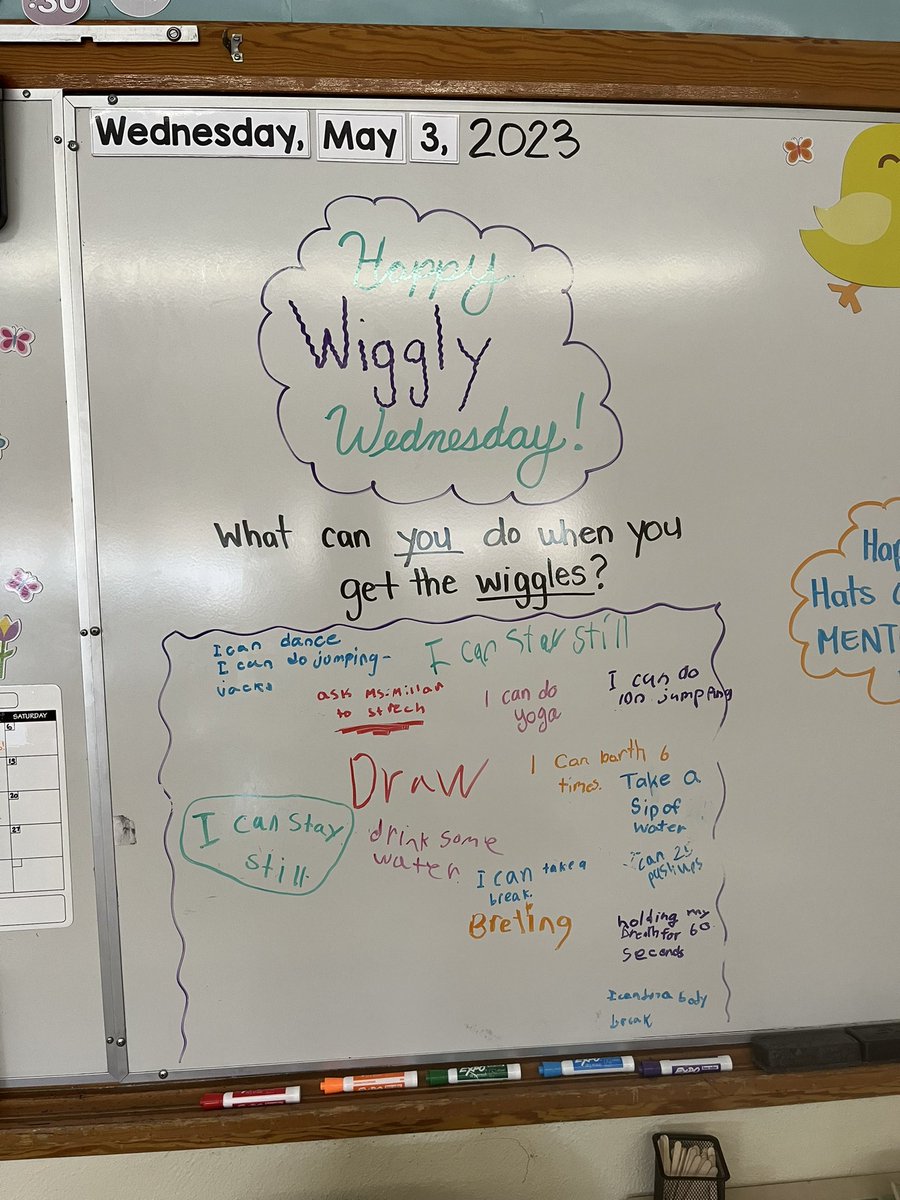 :30
Wednesday, May 3, 2023
Happy
Wiggly
Wednesday!
What can you do when you
get the wiggles?
I can dance
I can do jumping-
jacks
I can stay still
ask Ms. Millar
to strech
I can do
yoga
I can do
jumping
Draw
I can barth 6
times.
Take a
Sip of
water
I can stay
still.
drink some
water
I can take a
break.
can 25
pushups
Breting
holding my
Breath for 60
seconds
body
break
Hats
MENT
SATURDAY
6
13
20
27
EXPO
EXPO
EXPO
EXPO